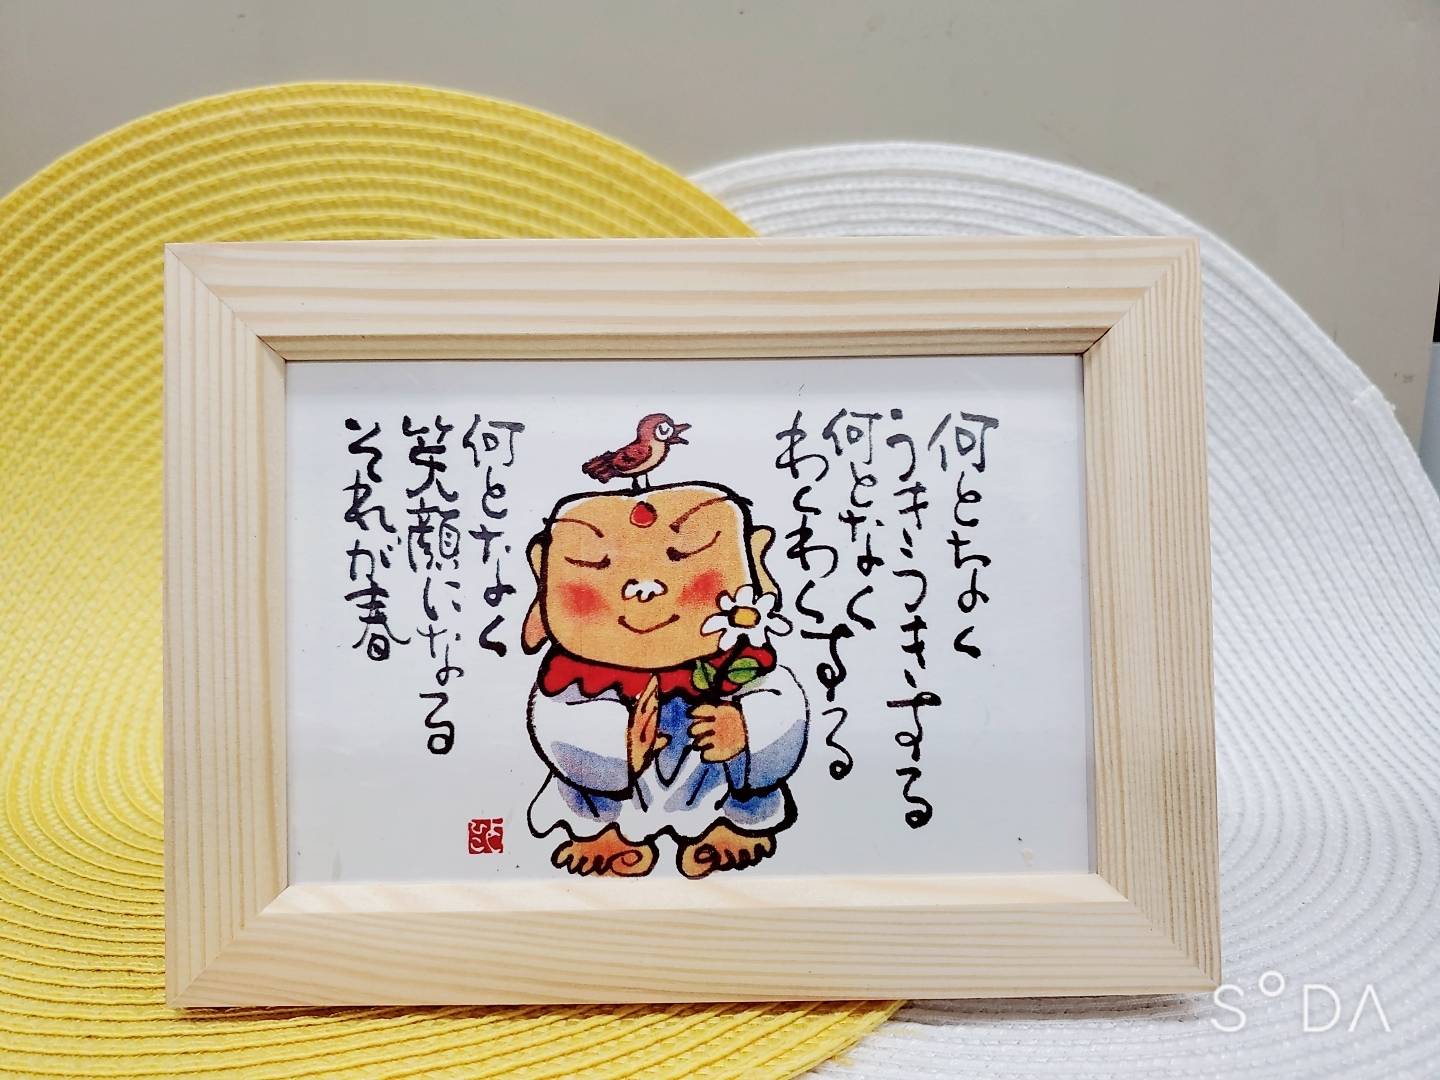 何となく
うきうきする
何となく
わくわくする
何となく
笑顔になる
それが春
SODA